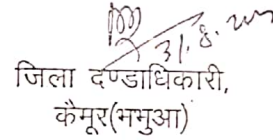 31.8.
जिला दण्डाधिकारी,
कैमूर(भभुआ)